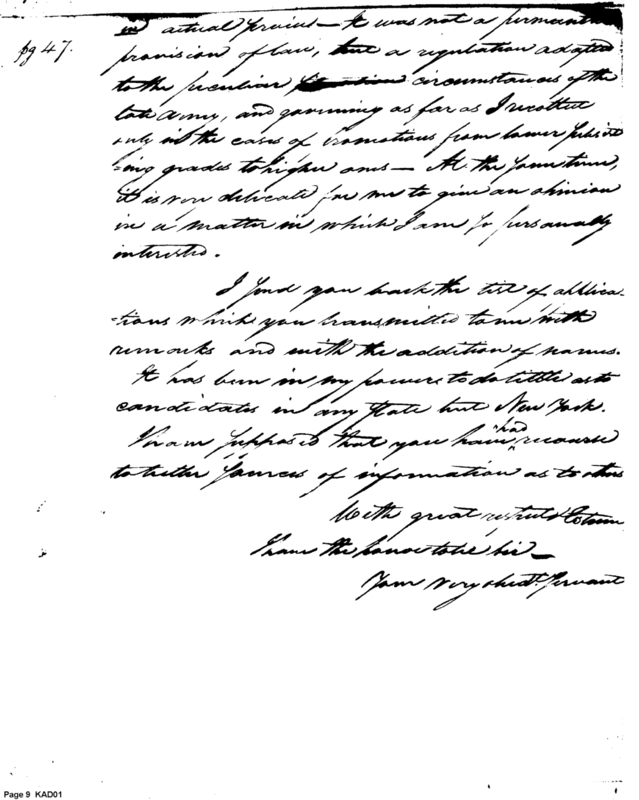 in actual service — It was not a permanent
pg 47.
provision of law, but a regulation adapted
to the peculiar circumstances of the
late army, and governing as far as I recollect
only in the cases of promotions from lower subsist
-ing grades to higher ones — At the same time,
it is very delicate for me to give an opinion
in a matter in which I am so personally
interested.
I send you back the list of applica-
-tions which you transmitted to me with
remarks and with the addition of names.
It has been in my power to do little as to
candidates in any State but New York.
I have supposed that you have had recourse
to better sources of information as to others
With great respect & esteem
I have the honor to be Sir —
Your very obedt. Servant
Page 9 KAD01